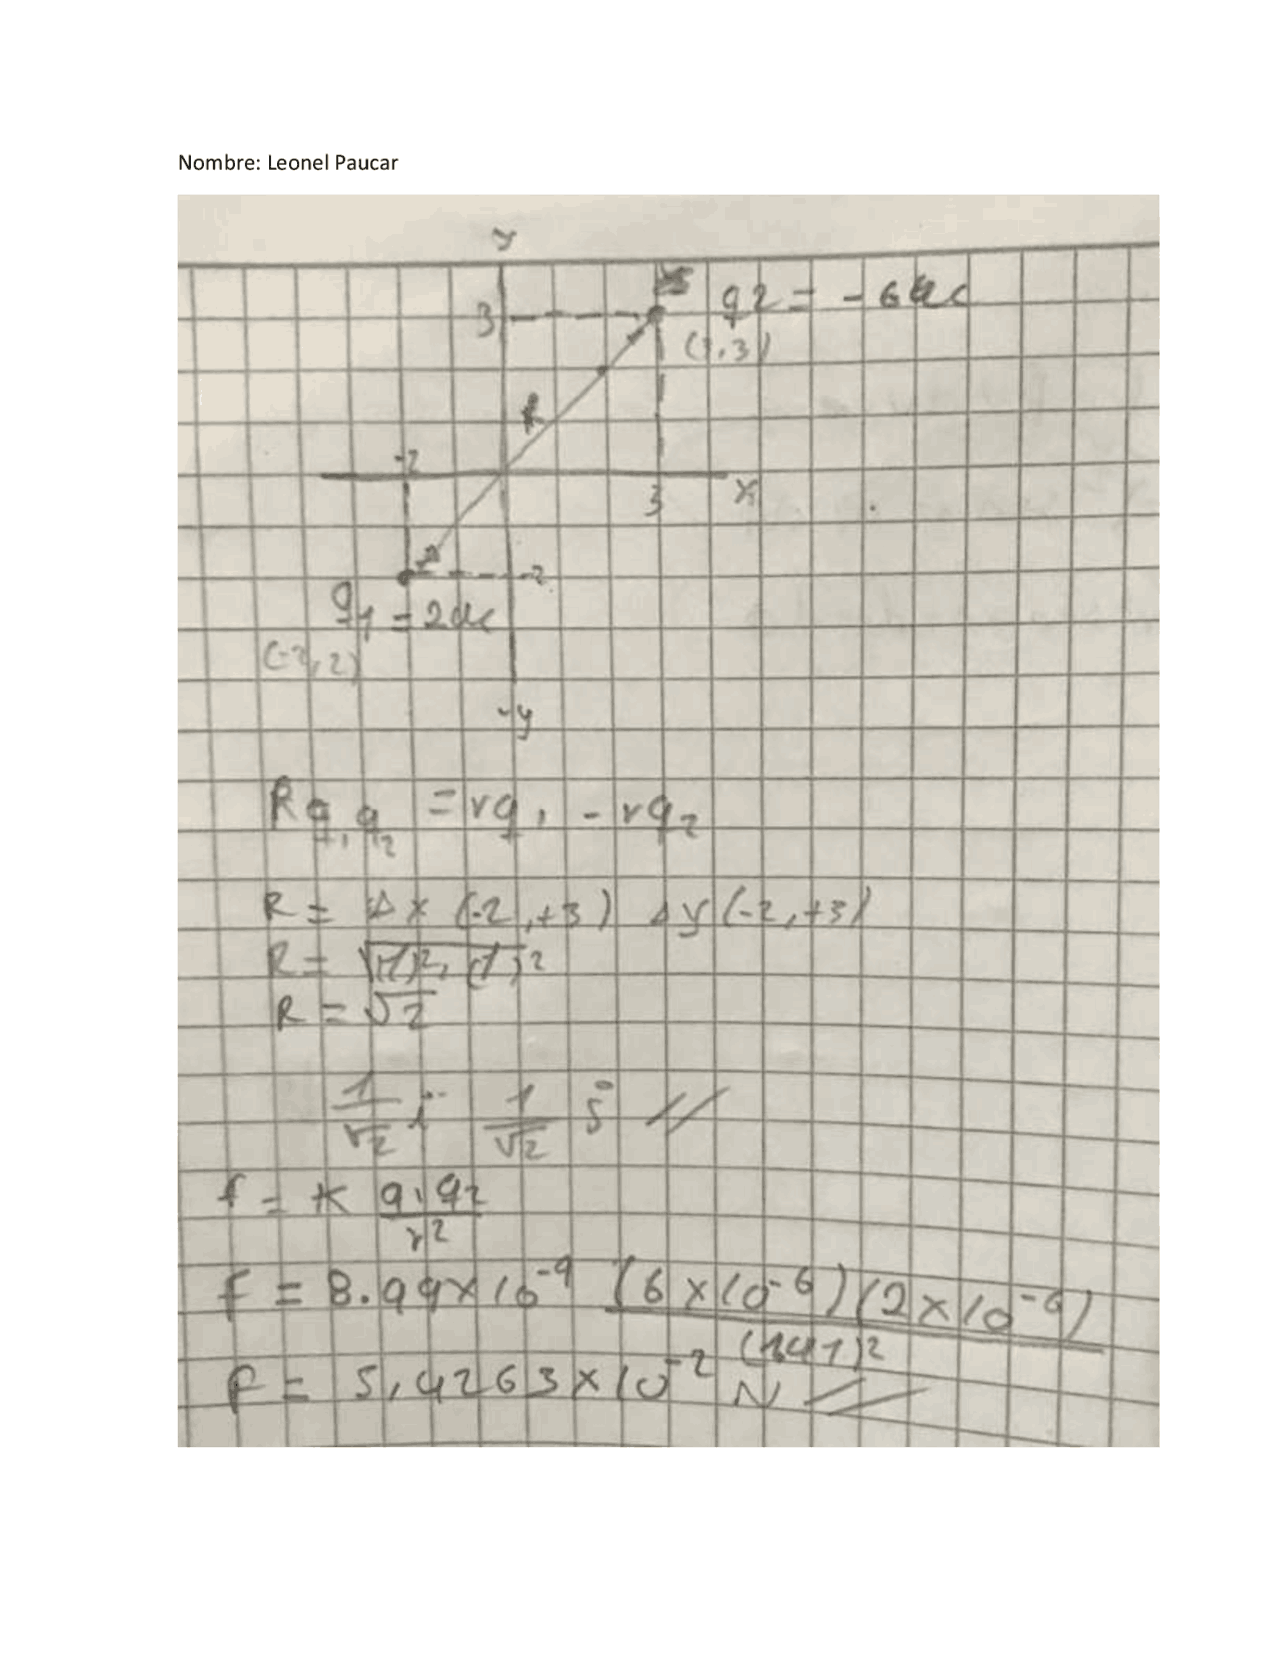 Nombre: Leonel Paucar
y
3
q2 = -6uc
(3,3)
R
-2
3
x
-2
q1 = 2uc
(-2,2)
-y
Rq1q2 = rq1 - rq2
R = Δx (-2,+3) Δy (-2,+3)
R = √(1)², (1)²
R = √2
1/√2 i 1/√2 j //
f = K q1q2/r²
F = 8.99x10⁻⁹ (6x10⁻⁶)(2x10⁻⁶)/(1.41)²
F = 5,4263x10⁻² N //